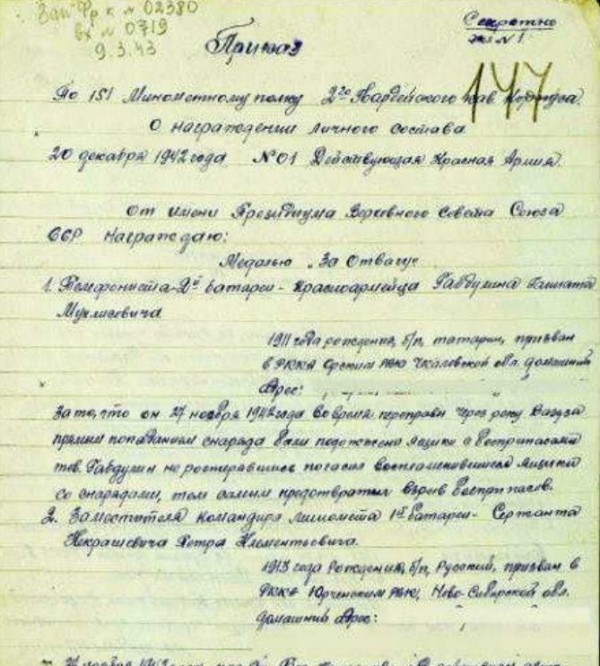 Зап. Фр к. № 02380
вх № 0719
9.3.43
Секретно
экз № 1
147
Приказ
По 151 Минометному полку 2го Гвардейского кав. Корпуса.
О награждении личного состава
20 декабря 1942 года №01 Действующая Красная Армия.
От имени Президиума Верховного Совета Союза
ССР Награждаю:
Медалью „За Отвагу"
1. Телефониста - 2й батареи - Красноармейца Габдулина
Муллисовича
1911 года рождения, б/п, татарин, призван
в РККА Орским РВК Чкаловской обл. домашний
Адрес:
За то, что он 27 ноября 1942 года во время переправы через реку Вазуза
прямым попаданием снаряда были подожжены ящики с боеприпасами
тов. Габдулин не растерявшись погасил воспламенившиеся ящики
со снарядами, тем самым предотвратил взрыв боеприпасов.
2. Заместителя командира миномета 1й батареи - Сержанта
Некрашевича Петра Клементьевича.
1913 года рождения, б/п, Русский, призван в
РККА РВК, Ново-Сибирской обл.
домашний адрес:
ноября 1942 года